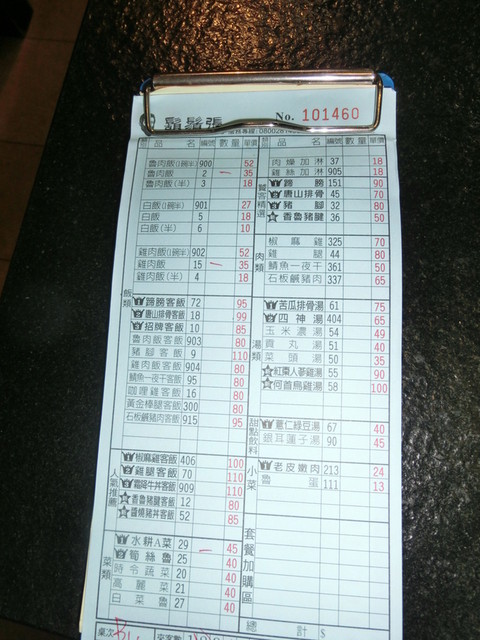 鬍鬚張 No. 101460
品名 編號 數量 單價
魯肉飯(1碗半) 900 52
魯肉飯 2 一 35
魯肉飯(半) 3 18
白飯(1碗半) 901 27
白飯 5 18
白飯(半) 6 10
雞肉飯(1碗半) 902 52
雞肉飯 15 一 35
雞肉飯(半) 4 18
飯類
蹄膀客飯 72 95
唐山排骨客飯 18 99
招牌客飯 10 85
魯肉客飯 903 80
豬腳客飯 9 110
雞肉客飯 904 80
鯖魚一夜干客飯 95 80
咖哩雞客飯 16 80
黃金棒腿客飯 300 80
石板鹹豬肉客飯 915 95
人氣推薦
椒麻雞客飯 406 100
雞腿客飯 70 110
霜降牛丼客飯 909 110
香魯豬腱客飯 12 80
醬燒豬丼客飯 52 85
菜類
水耕A菜 29 一 45
筍絲魯 25 40
時令蔬菜 20 40
高麗菜 21 40
白菜魯 27 40
桌次
來客數
品名 編號 數量 單價
肉燥加淋 37 18
雞絲加淋 905 18
蹄膀 151 90
唐山排骨 45 70
豬腳 32 80
香魯豬腱 36 50
肉類
椒麻雞 325 70
雞腿 44 80
鯖魚一夜干 361 50
石板鹹豬肉 337 65
湯類
苦瓜排骨湯 61 75
四神湯 404 65
玉米濃湯 54 49
貢丸湯 51 40
菜頭湯 50 35
紅棗人蔘雞湯 55 90
何首烏雞湯 58 100
甜點飲料
薏仁綠豆湯 67 40
銀耳蓮子湯 90 45
小菜
老皮嫩肉 213 24
魯蛋 111 13
套餐加購區
總計 $